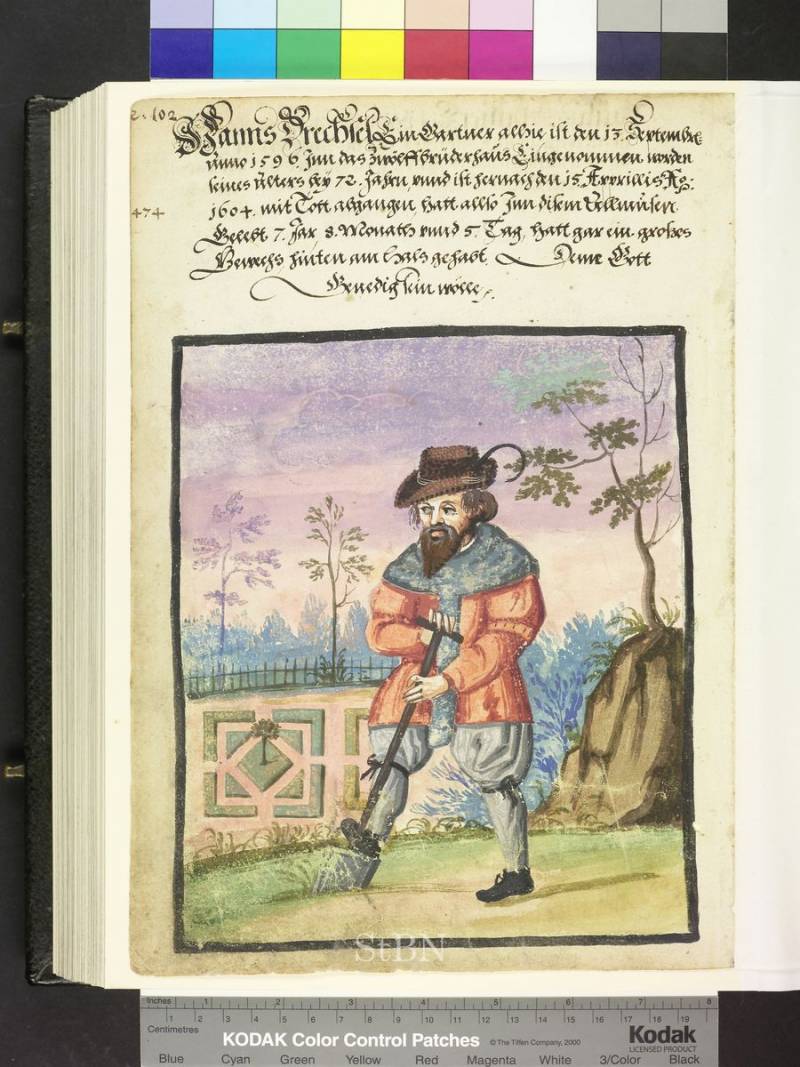 2. 102
Hanns Drechsel Ein Gartner alhie ist den 13. Septembr.
Anno 1596. Jnn das Zwölffbrüderhaus Eingenommen worden
seines Alters bey 72. Jahren vnnd ist hernach den 15. Apprillis
474
1604. mit Tott abgangen, hatt allso Jnn disem Sellmusen
Gelebt 7. Jar 8. Monath vnnd 5. Tag, hatt gar ein großes
Gewechs hinten am hals gehabt. Deme Gott
Genedig sein wölle
StBN
Inches 1 2 3 4 5 6 7 8
Centimetres 1 2 3 4 5 6 7 8 9 10 11 12 13 14 15 16 17 18 19
KODAK Color Control Patches © The Tiffen Company, 2000 Kodak
LICENSED PRODUCT
Blue Cyan Green Yellow Red Magenta White 3/Color Black